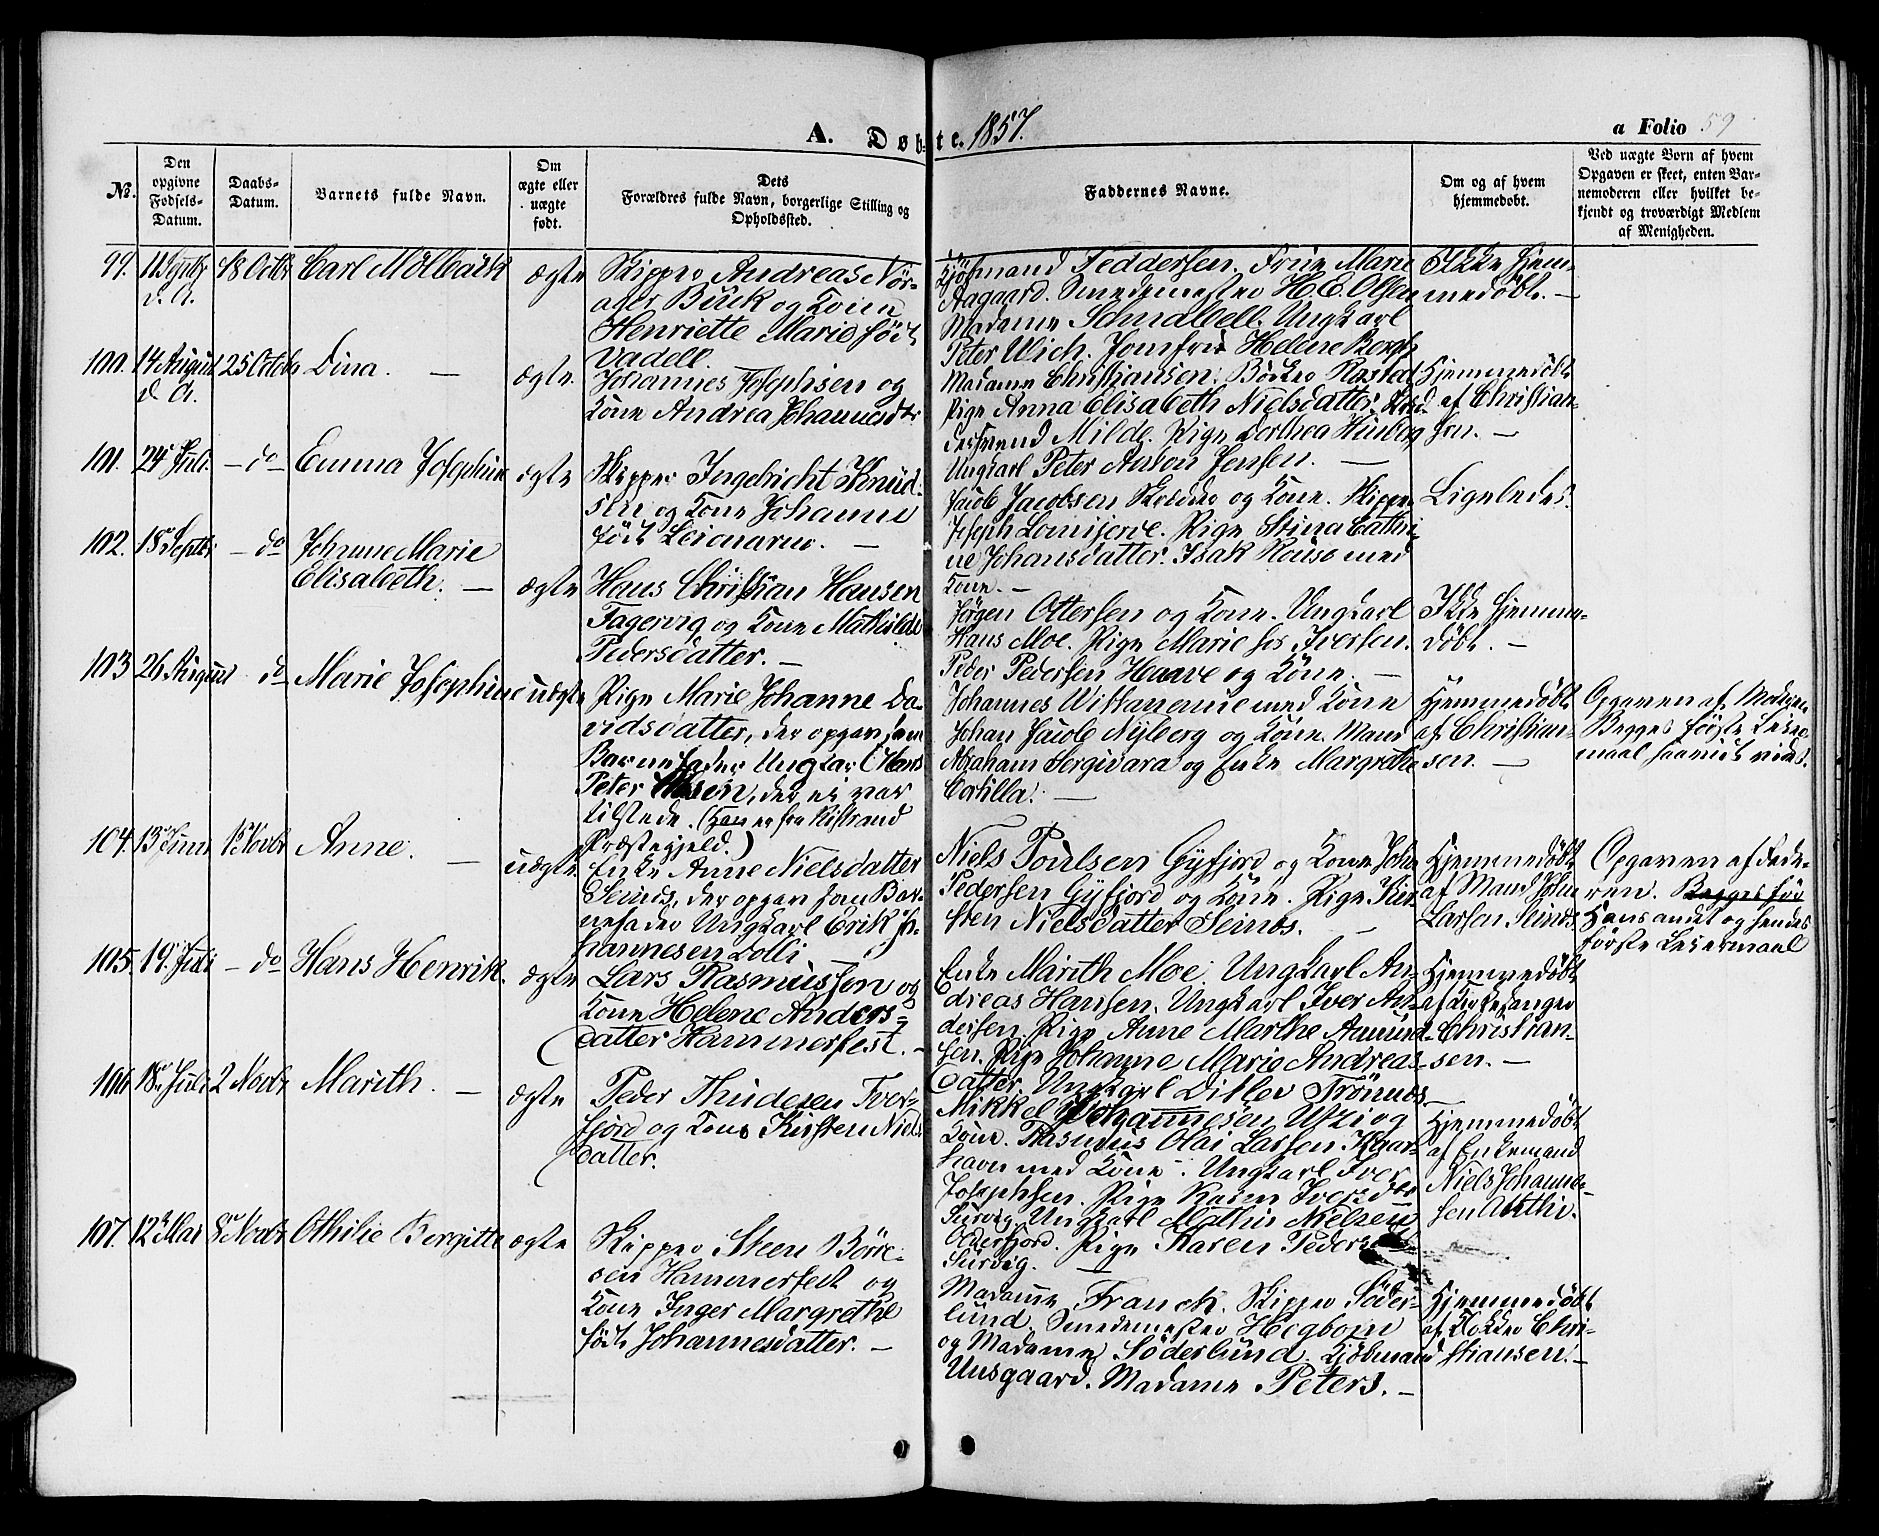 A. Døbte. 1857.
a Folio 59
No.
Den opgivne Fødsels-Datum.
Daabs-Datum.
Barnets fulde Navn.
Om ægte eller uægte født.
Dets Forældres fulde Navn, borgerlige Stilling og Opholdssted.
Faddernes Navne.
Om og af hvem hjemmedøbt.
Ved uægte Born af hvem Opgaven er skeet, enten Barnemoderen eller hvilket bekjendt og troværdigt Medlem af Menigheden.
99. 11 Septbr d. A. 18 Octbr Carl Mölbach ægte
Skipper Andreas Nör-
ager Buck og Kone
Henriette Marie född
Vadell.
Kjöbmand Feddersen. Frue Marie
Aagaard. Smedemester H. C. Olsen
Madame Schnabell. Ungkarl
Peter Wich. Jomfru Helene Bergh
Ikke hjem-
medöbt. —
100. 14 August d A. 25 Octob Dina. — ægte
Johannes Josephsen og
Kone Andrea Johannesdtr
Madame Christiansen. Bödker Rastad
Pige Anna Elisabeth Nielsdatter.
Milde. Pige Dorthea
Ungkarl Peter Anton Jensen. —
Hjemmedöbt
af Christian-
sen. —
101. 24 Juli — do Emma Josephine ægte
Skipper Ingebricht Knud-
sen og Kone Johanne
född
Jacob Jacobsen og Kone. Skipper
Joseph Lomijerve. Pige Stina Cathri-
ne Johansdatter. Isak med
Kone. —
Ligeledes.
102. 18 Septbr — do Johanne Marie
Elisabeth. — ægte
Hans Christian Hansen
Fagervig og Kone Mathilde
Pedersdatter. —
Jørgen Ottersen og Kone. Ungkarl
Hans Moe. Pige Marie Iversen.
Peder Pedersen Haave og Kone. —
Ikke hjemme-
döbt. —
103 26 August do Marie Josephine uægte
Pige Marie Johanne Da-
vidsdatter, der opgav som
Barnefader Ungkarl Hans
Peter Olsen, der ei var
tilstede. (Han er fra Kistrand
Præstegjeld.)
Johannes Wittaniemie med Kone
Johan Jacob Nyberg og Kone. Mand
Abraham Sergivara og Enke Margrethe
Cortilla. —
Hjemmedöbt
af Christian-
sen. —
Opgaven af Moderen
Begges förste Leier-
maal saavidt vides.
104. 13 Juni 1 Novbr Anne. — uægte
Enke Anne Nielsdatter
Seinos, der opgav som Bar-
nefader Ungkarl Erik Jo-
hannesen Lolli
Niels Poulsen Gyfjord og Kone John
Pedersen Gyfjord og Kone. Pige Kir-
sten Nielsdatter Seinos. —
Hjemmedöbt
af Mand John
Larsen Seinos
Opgaven af Fade-
ren. Begges för
Hans andet og hendes
förste Leiermaal
105. 19. Juli — do Hans Henrik. ægte
Lars Rasmussen og
Kone Helene Anders-
datter Hammerfest. —
Enke Marith Moe. Ungkarl An-
dreas Hansen. Ungkarl Iver An-
dersen. Pige Anne Marthe Amund-
sen. Pige Johanne Marie Andreas-
datter. Ungkarl Ditlev Trönnes
Hjemmedöbt
af Kirkesanger
Christian-
sen. —
106 18 Juli 2 Novbr Marith. — ægte
Peder Thudesen Tver-
fjord og Kone Kirsten Niels
datter.
Mikkel Johannesen Utzi og
Kone. Rasmus Olai Larsen
havn med Kone. Ungkarl Iver
Josephsen. Pige Karen Iversdtr
Survig. Ungkarl Mathis Nielsen
Olderfjord. Pige Karen Peders
Survig. —
Hjemmedöbt
af Enkemand
Niels Johanne-
sen
107. 12 Mai 8 Novbr Othilie Bergitte ægte
Skipper Steen Börre-
sen Hammerfest og
Kone Inger Margrethe
född Johannesdatter. —
Madame Franck. Skipper Söder-
lund. Smedemester Högbom
og Madame Söderlund. Kjöbmand
Unsgaard. Madame Peters. —
Hjemmedöbt
af Klokker Chri-
stiansen. —